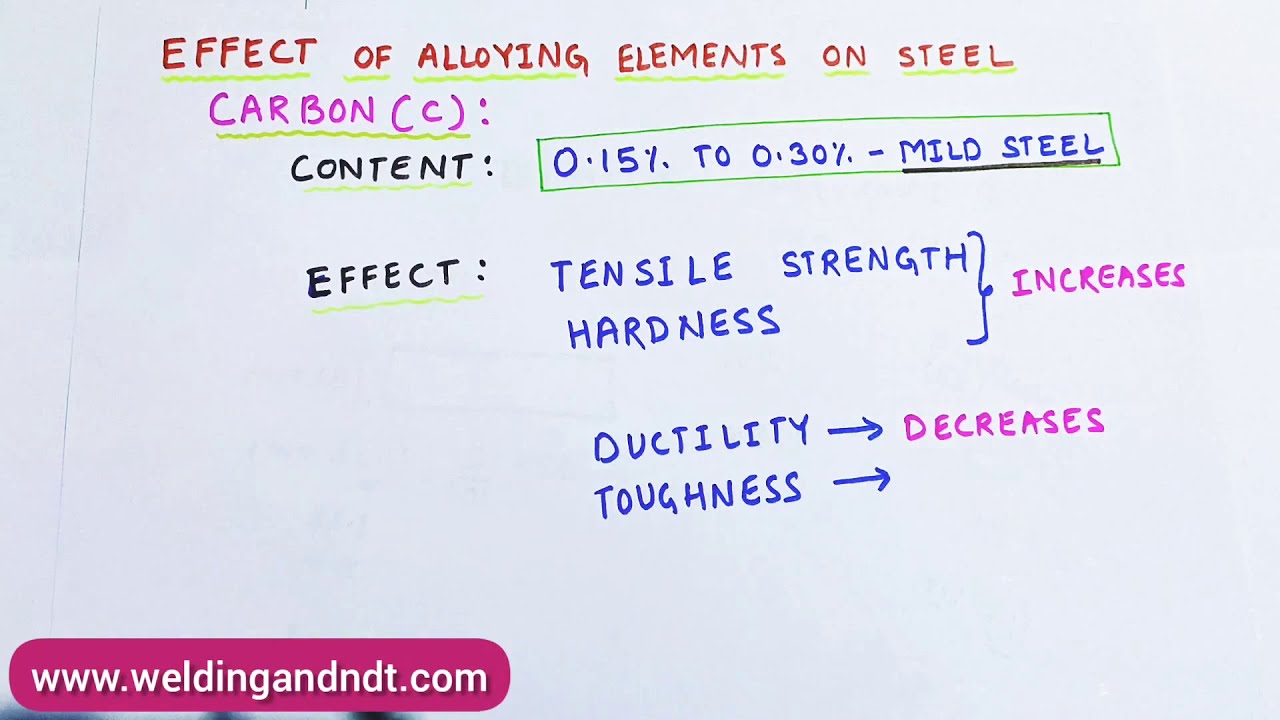 EFFECT OF ALLOYING ELEMENTS ON STEEL
CARBON (C):
CONTENT: 0.15% TO 0.30% - MILD STEEL
EFFECT: TENSILE STRENGTH } INCREASES
HARDNESS
DUCTILITY → DECREASES
TOUGHNESS →
www.weldingandndt.com